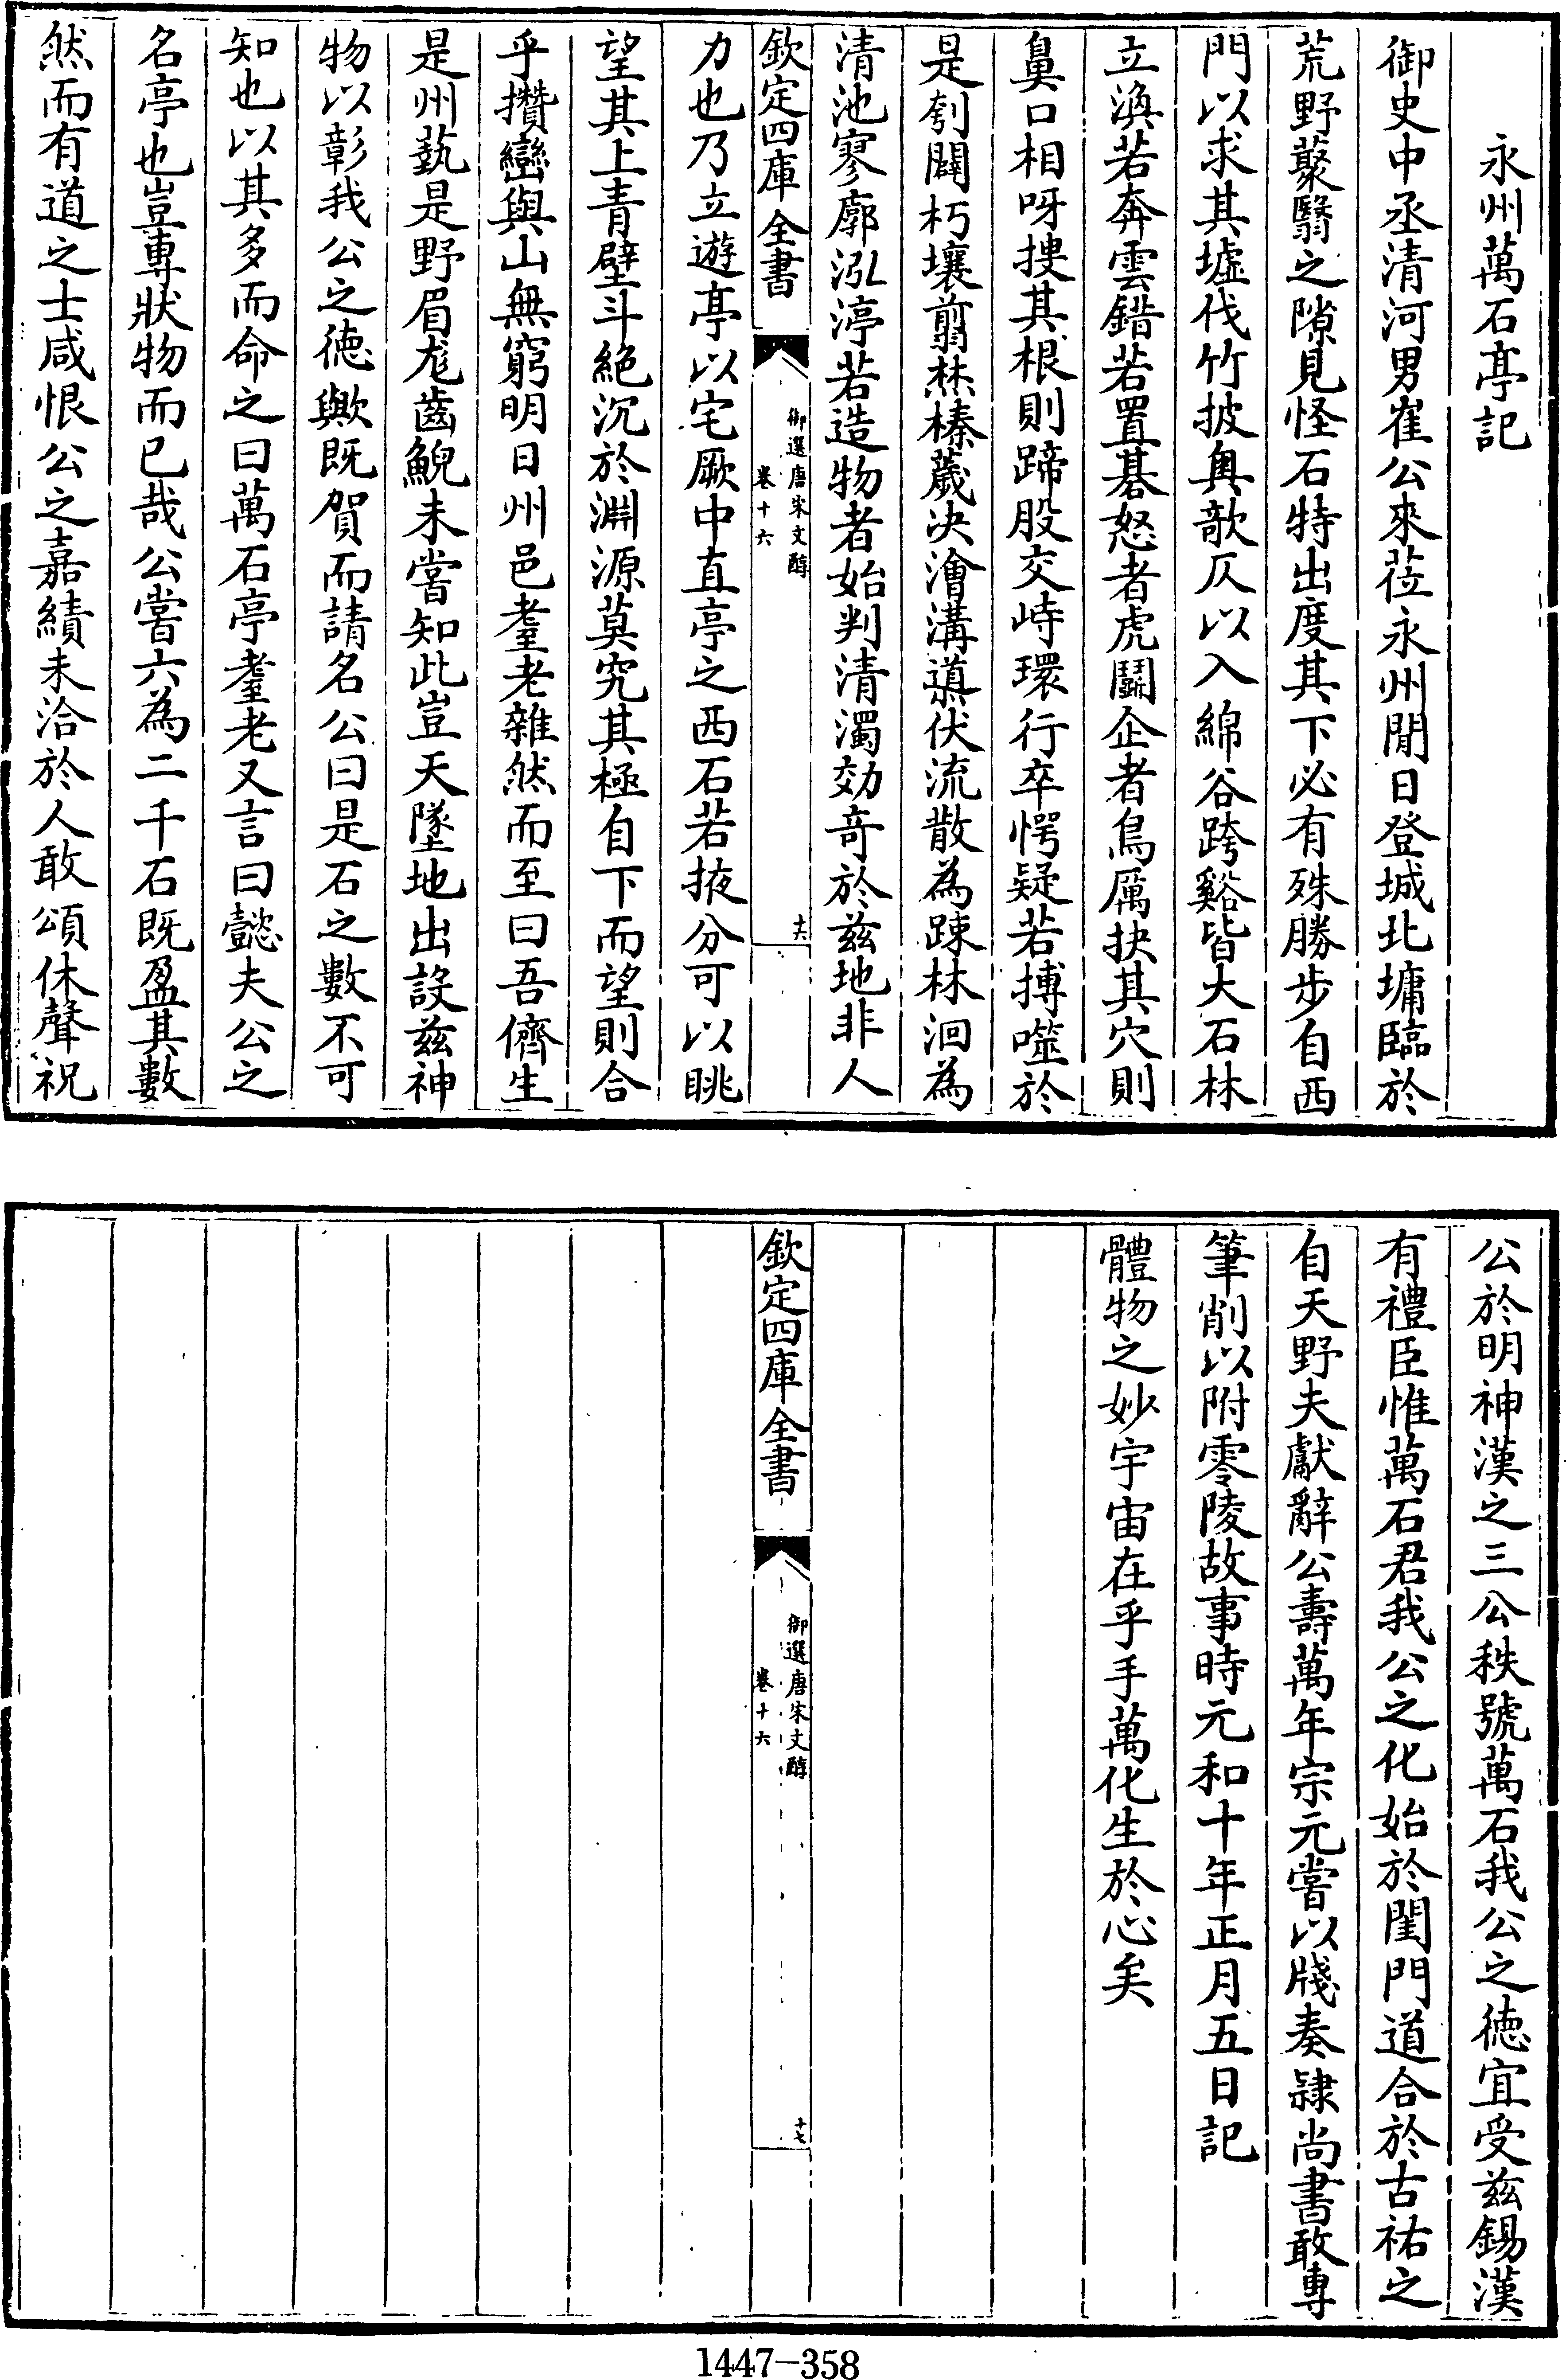 永州萬石亭記
御史中丞清河男崔公來莅永州閒日登城北墉臨於
荒野藂翳之隙見怪石特出度其下必有殊勝步自西
門以求其墟伐竹披奧欹仄以入綿谷跨谿皆大石林
立渙若奔雲錯若置碁怒者虎鬭企者鳥厲抉其穴則
鼻口相呀搜其根則蹄股交峙環行卒愕疑若搏噬於
是刳闢朽壤翦焚榛薉决澮溝導伏流散為踈林洄為
清池寥廓泓渟若造物者始判清濁効奇於兹地非人
欽定四庫全書
御選唐宋文醇
卷十六
十六
力也乃立遊亭以宅厥中直亭之西石若掖分可以眺
望其上青壁斗絶沉於淵源莫究其極自下而望則合
乎攢巒與山無窮明日州邑耋老雜然而至曰吾儕生
是州蓺是野眉厖齒鯢未嘗知此豈天墜地出設兹神
物以彰我公之徳歟既賀而請名公曰是石之數不可
知也以其多而命之曰萬石亭耋老又言曰懿夫公之
名亭也豈專狀物而已哉公嘗六為二千石既盈其數
然而有道之士咸恨公之嘉績未洽於人敢頌休聲祝
公於明神漢之三公秩號萬石我公之徳宜受兹錫漢
有禮臣惟萬石君我公之化始於閨門道合於古祐之
自天野夫獻辭公壽萬年宗元嘗以牋奏隷尚書敢專
筆削以附零陵故事時元和十年正月五日記
體物之妙宇宙在乎手萬化生於心矣
欽定四庫全書
御選唐宋文醇
卷十六
十七
1447-358